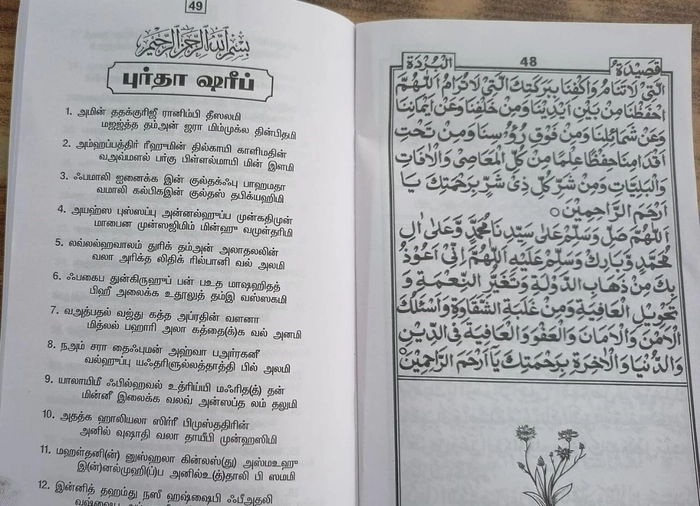 49
بِسْمِ اللهِ الرَّحْمٰنِ الرَّحِيْمِ
புர்தா ஷரீப்
1. அமின் ததக்குரிஜீ ரானிம்பி தீஸலமி
மஜஜ்த்த தம்அன் ஜரா மிம்முக்ல தின்பிதமி
2. அம்ஹப்பத்திர் ரீஹுமின் தில்காயி காளிமதின்
வஅவ்மளல் பர்கு பின்ளல்மாயி மின் இளமி
3. ஃபமாலி ஐனைக்க இன் குல்தக்ஃபு பாஹமதா
வமாலி கல்பிகஇன் குல்தஸ் தபிக்யஹிமி
4. அயஹ்ஸ புஸ்ஸப்பு அன்னல்ஹுப்ப முன்கதிமுன்
மாபைன முன்ஸஜிமிம் மின்ஹு வமுள்தரிமி
5. லவ்லல்ஹவாலம் துரிக் தம்அன் அலாதலலின்
வலா அரிக்த லிதிக் ரில்பானி வல் அலமி
6. ஃபகைப துன்கிருஹுப் பன் பஉத மாஷஹிதத்
பிஹீ அலைக்க உதூலுத் தம்இ வஸ்ஸகமி
7. வஅத்பதல் வஜ்து கத்த அப்ரதின் வளனா
மித்லல் பஹாரி அலா கத்தை(க்)க வல் அனமி
8. நஅம் சரா தைஃபுமன் அஹ்வா பஅர்ரகனீ
வல்ஹுப்பு யஃதரிளுல்லத்தாத்தி பில் அலமி
9. யாலாயிமீ ஃபில்ஹவல் உத்ரிய்யி மஃரித(த்) தன்
மின்னீ இலைக்க வலவ் அன்ஸப்த லம் தலுமி
10. அதத்க ஹாலியலா ஸிர்ரீ பிமுஸ்ததிரின்
அனில் வுஷாதி வலா தாயீபி முன்ஹஸிமி
11. மஹள்தனி(ன்) னுஸ்ஹலா கின்லஸ்(து) அஸ்மஉஹு
இ(ன்)னல்முஹி(ப்)ப அனில்உ(த்)தாலி பி ஸமமி
12. இன்னித் தஹம்து நஸீ ஹஷ்ஷைபி ஃபீஅதலி
قصيدة 48 البُرْدَة
الَّتِيْ لَا تَنَامُ وَاكْفِنَا بِبَرَكَتِكَ الَّتِيْ لَا تُرَامُ اَللّٰهُمَّ
احْفَظْنَا مِنْ بَيْنِ اَيْدِيْنَا وَمِنْ خَلْفِنَا وَعَنْ اَيْمَانِنَا
وَعَنْ شَمَائِلِنَا وَمِنْ فَوْقِ رُؤُوْسِنَا وَمِنْ تَحْتِ
اَقْدَامِنَا حِفْظًا عِلْمًا مِنْ كُلِّ الْمَعَاصِيْ وَالْاٰفَاتِ
وَالْبَلِيَّاتِ وَمِنْ شَرِّ كُلِّ ذِيْ شَرٍّ بِرَحْمَتِكَ يَا
اَرْحَمَ الرَّاحِمِيْنَ○
اَللّٰهُمَّ صَلِّ وَسَلِّمْ عَلٰى سَيِّدِنَا مُحَمَّدٍ وَّعَلٰى اٰلِ
مُحَمَّدٍ وَّبَارِكْ وَسَلِّمْ عَلَيْهِ اَللّٰهُمَّ اِنِّيْ اَعُوْذُ
بِكَ مِنْ ذَهَابِ الدَّوْلَةِ وَتَغَيُّرِ النِّعْمَةِ وَ
تَحْوِيْلِ الْعَافِيَةِ وَمِنْ غَلَبَةِ الشَّقَاوَةِ وَاَسْئَلُكَ
الْاَمْنَ وَالْاَمَانَ وَالْعَفْوَ وَالْعَافِيَةَ فِى الدِّيْنِ
وَالدُّنْيَا وَالْاٰخِرَةِ بِرَحْمَتِكَ يَا اَرْحَمَ الرَّاحِمِيْنَ○